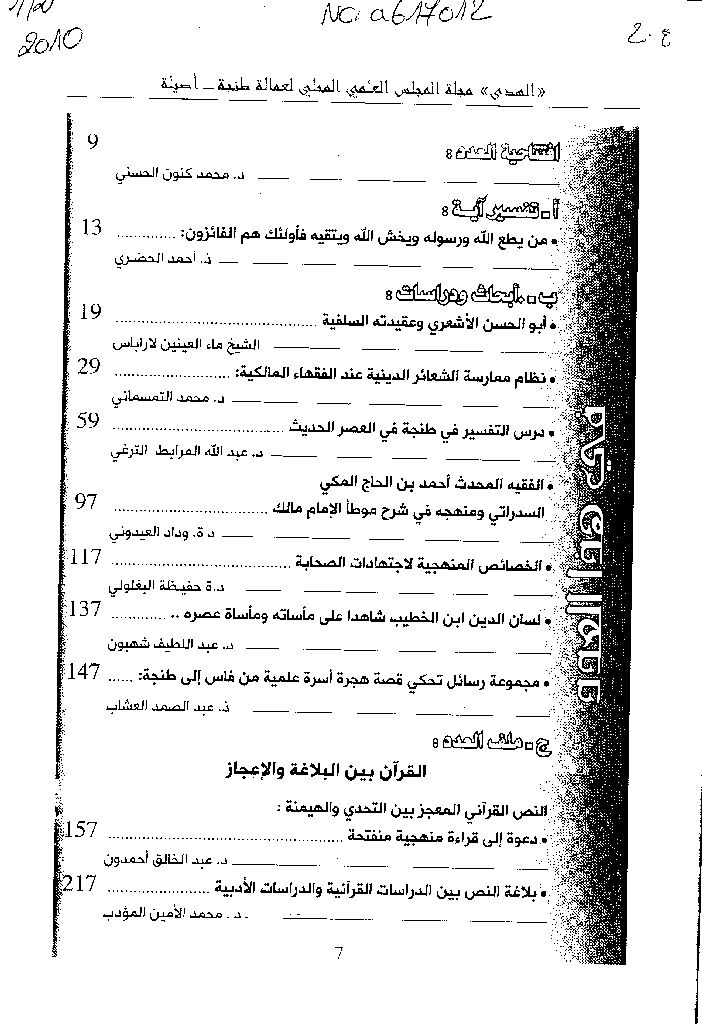 2010
NO: a617012
«الهدى» مجلة المجلس العلمي المحلي لعمالة طنجة – أصيلة
افتتاحية العدد : 9
د. محمد كنون الحسني
أ - تفسير آية :
• من يطع الله ورسوله ويخش الله ويتقيه فأولئك هم الفائزون: ............ 13
ذ. أحمد الحضري
ب - أبحاث ودراسات :
• أبو الحسن الأشعري وعقيدته السلفية ............ 19
الشيخ ماء العينين لاراباس
• نظام ممارسة الشعائر الدينية عند الفقهاء المالكية: ............ 29
د. محمد التمسماني
• درس التفسير في طنجة في العصر الحديث ............ 59
د. عبد الله المرابط الترغي
• الفقيه المحدث أحمد بن الحاج المكي
السدراتي ومنهجه في شرح موطأ الإمام مالك ............ 97
د ة. وداد العيدوني
• الخصائص المنهجية لاجتهادات الصحابة ............ 117
د.ة حفيظة البغلولي
• لسان الدين ابن الخطيب شاهدا على مأساته ومأساة عصره .. ............ 137
د. عبد اللطيف شهبون
• مجموعة رسائل تحكي قصة هجرة أسرة علمية من فاس إلى طنجة: ...... 147
ذ. عبد الصمد العشاب
ج - ملف العدد :
القرآن بين البلاغة والإعجاز
النص القرآني المعجز بين التحدي والهيمنة :
• دعوة إلى قراءة منهجية منفتحة ............ 157
د. عبد الخالق أحمدون
• بلاغة النص بين الدراسات القرآنية والدراسات الأدبية ............ 217
د. محمد الأمين المؤدب
7